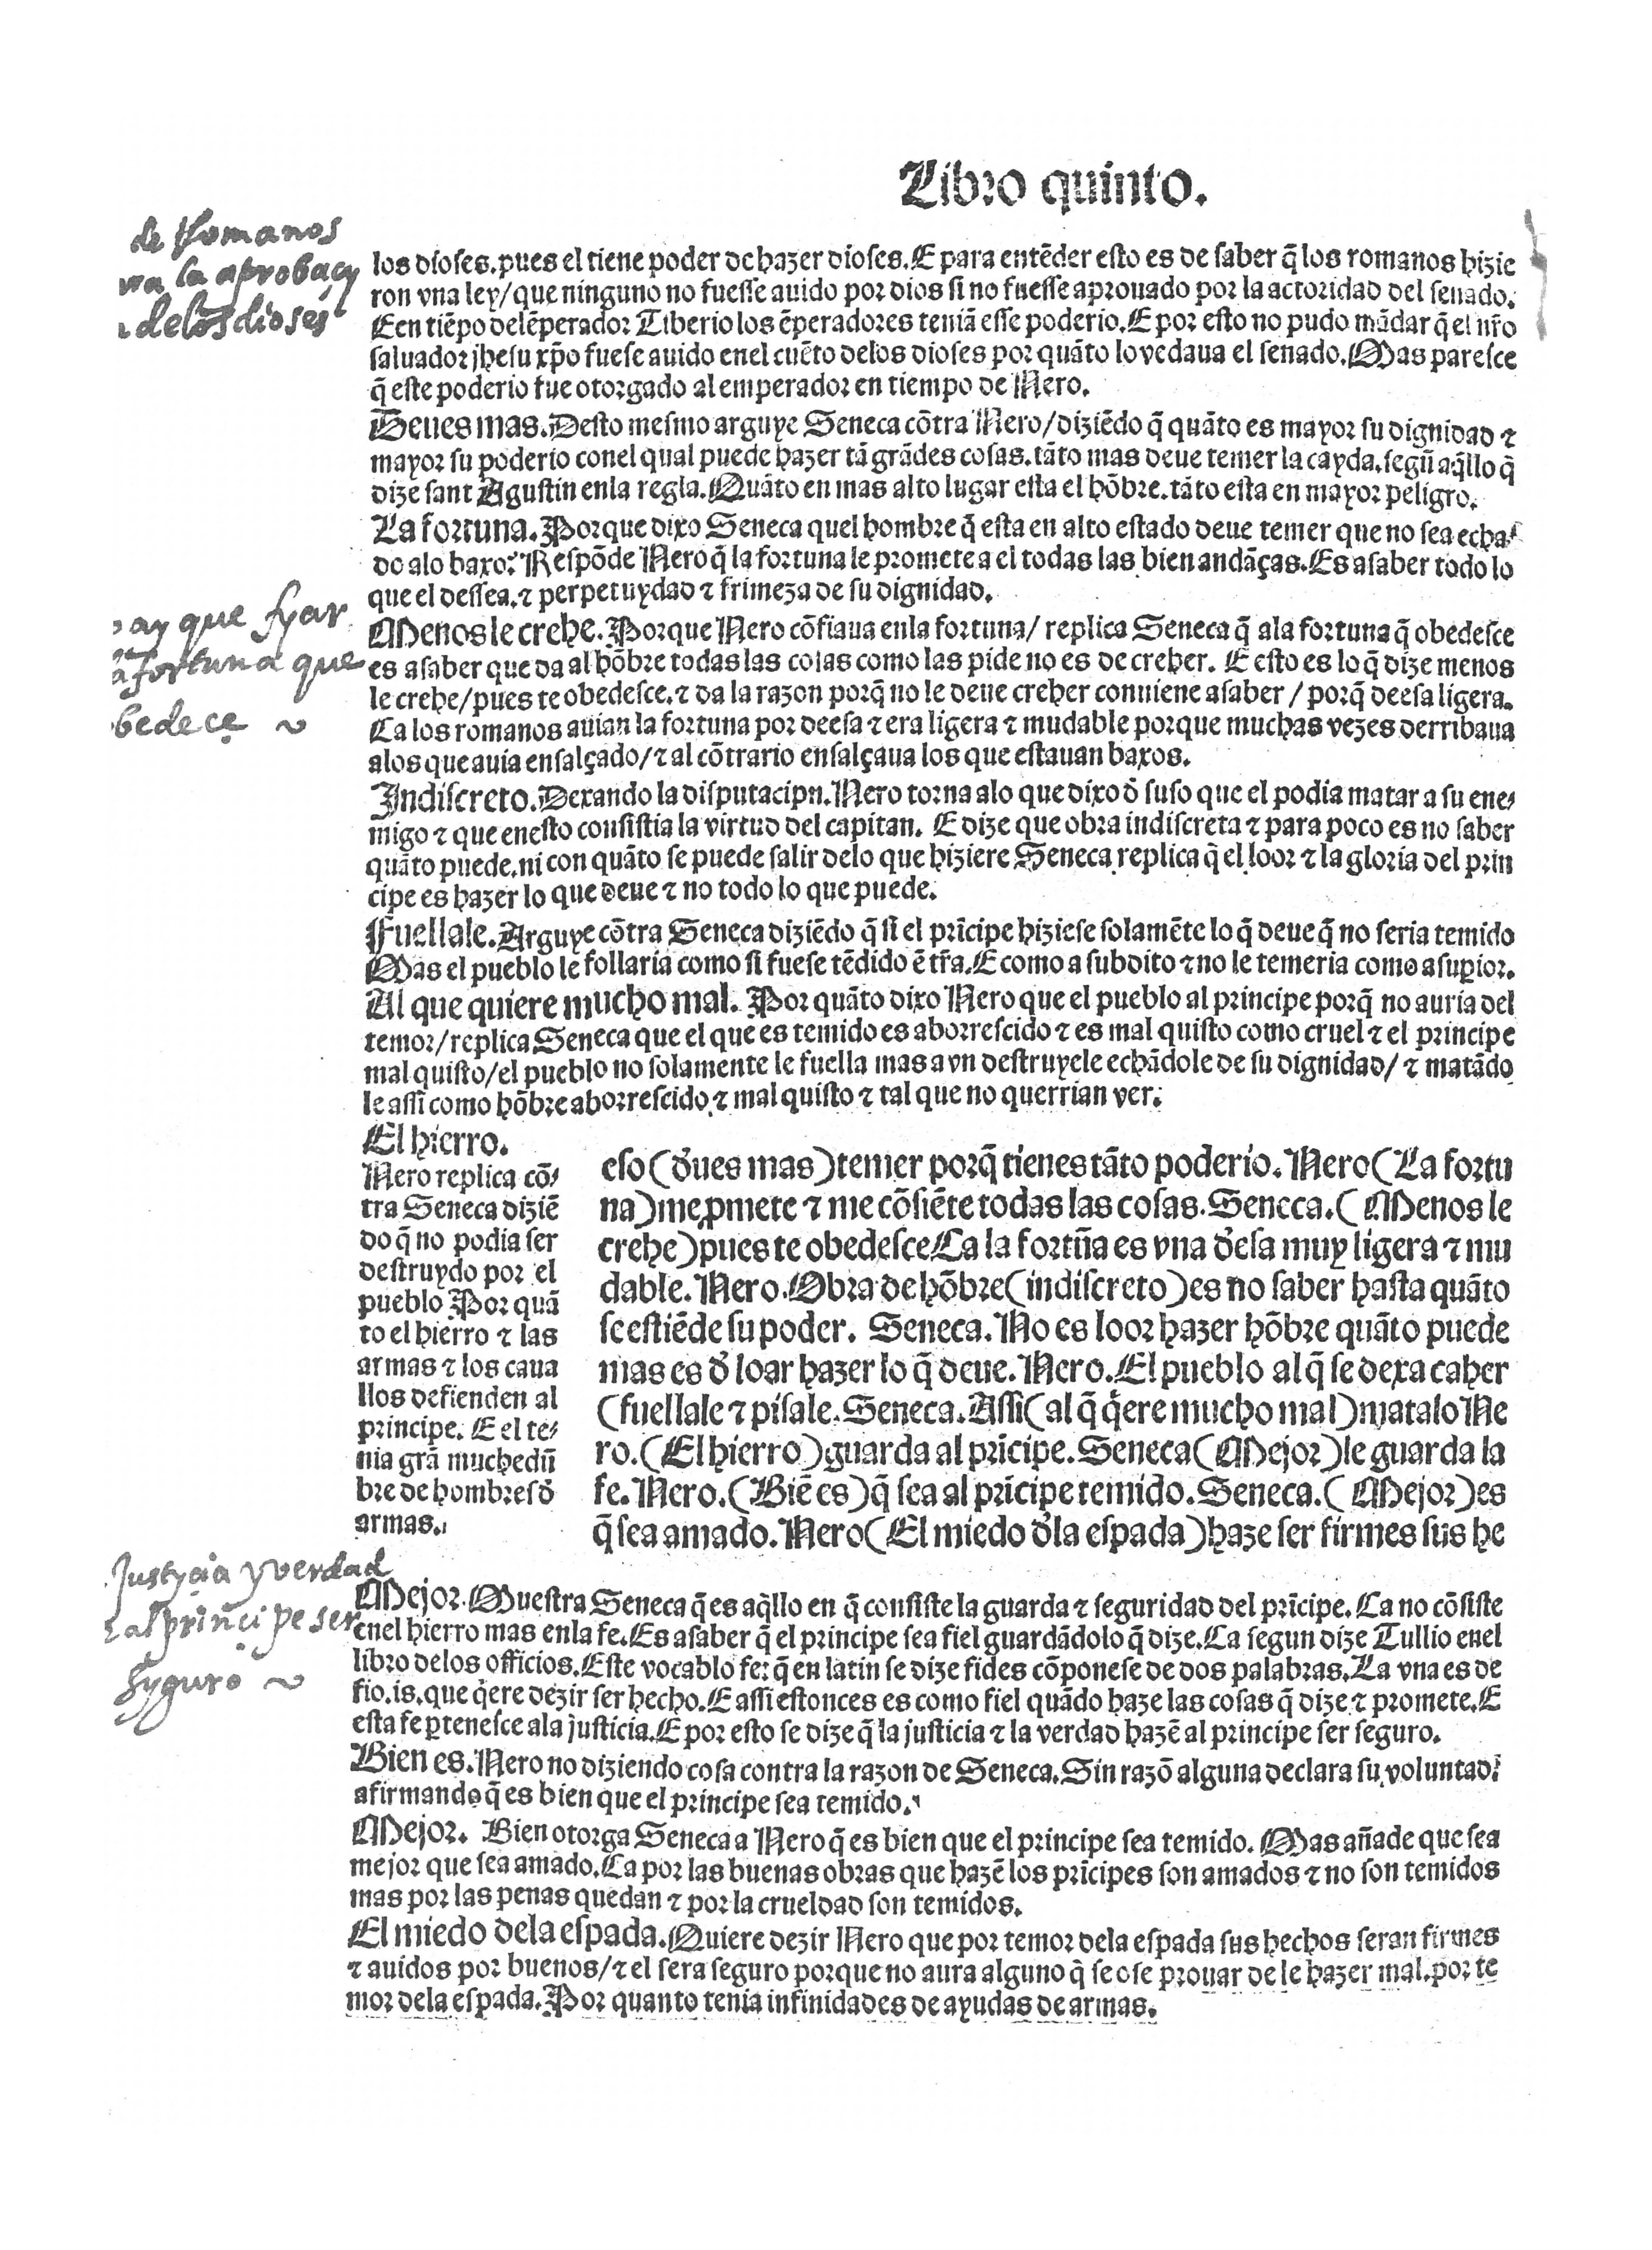 Libro quinto.
de Romanos
la aprobaçy
delos dioses
los dioses. pues el tiene poder de hazer dioses. E para entẽder esto es de saber q̃ los romanos hizie
ron vna ley/ que ninguno no fuesse auido por dios si no fuesse aprouado por la actoridad del senado.
E en tiẽpo del ẽperador Tiberio los ẽperadores teniã esse poderio. E por esto no pudo mãdar q̃ el nr̃o
saluador jhesu xp̃o fuese auido enel cuẽto delos dioses por quãto lo vedaua el senado. Mas paresce
q̃ este poderio fue otorgado al emperador en tiempo de Nero.
Deues mas. Desto mesmo arguye Seneca cõtra Nero/ diziẽdo q̃ quãto es mayor su dignidad ⁊
mayor su poderio conel qual puede hazer tã grãdes cosas. tãto mas deue temer la cayda. segũ aq̃llo q̃
dize sant Agustin enla regla. Quãto en mas alto lugar esta el hõbre. tãto esta en mayor peligro.
La fortuna. Porque dixo Seneca quel hombre q̃ esta en alto estado deue temer que no sea echa⸗
do alo baxo. Respõde Nero q̃ la fortuna le promete a el todas las bien andãças. Es asaber todo lo
que el dessea. ⁊ perpetuydad ⁊ frimeza de su dignidad.
ay que fyar
fortuna que
bedeçe ~
Menos le crehe. Porque Nero cõfiaua enla fortuna/ replica Seneca q̃ ala fortuna q̃ obedesce
es asaber que da al hõbre todas las cosas como las pide no es de creher. E esto es lo q̃ dize menos
le crehe/ pues te obedesce. ⁊ da la razon porq̃ no le deue creher conuiene asaber / porq̃ deesa ligera.
Ca los romanos auian la fortuna por deesa ⁊ era ligera ⁊ mudable porque muchas vezes derribaua
alos que auia ensalçado/ ⁊ al cõtrario ensalçaua los que estauan baxos.
Indiscreto. Dexando la disputacipn. Nero torna alo que dixo đ suso que el podia matar a su ene⸗
migo ⁊ que enesto consistia la virtud del capitan. E dize que obra indiscreta ⁊ para poco es no saber
quãto puede. ni con quãto se puede salir delo que hiziere Seneca replica q̃ el loor ⁊ la gloria del prin
cipe es hazer lo que deue ⁊ no todo lo que puede.
Fuellale. Arguye cõtra Seneca diziẽdo q̃ si el prĩcipe hiziese solamẽte lo q̃ deue q̃ no seria temido
Mas el pueblo le follaria como si fuese tẽdido ẽ tr̃a. E como a subdito ⁊ no le temeria como a suꝑior.
Al que quiere mucho mal. Por quãto dixo Nero que el pueblo al principe porq̃ no auria del
temor/ replica Seneca que el que es temido es aborrescido ⁊ es mal quisto como cruel ⁊ el principe
mal quisto/ el pueblo no solamente le fuella mas avn destruyele echãdole de su dignidad/ ⁊ matãdo
le assi como hõbre aborrescido ⁊ mal quisto ⁊ tal que no querrian ver.
El hierro.
Nero replica cõ⸗
tra Seneca diziẽ
do q̃ no podia ser
destruydo por el
pueblo Por quã
to el hierro ⁊ las
armas ⁊ los caua
llos defienden al
principe. E el te⸗
nia grã muchedũ
bre de hombres đ
armas.
eso (đues mas) temer porq̃ tienes tãto poderio. Nero (La fortu
na) me ꝓmete ⁊ me cõsiẽte todas las cosas. Seneca. (Menos le
crehe) pues te obedesce Ca la fortũa es vna đesa muy ligera ⁊ mu
dable. Nero. Obra de hõbre (indiscreto) es no saber hasta quãto
se estiẽde su poder. Seneca. No es loor hazer hõbre quãto puede
mas es đ loar hazer lo q̃ deue. Nero. El pueblo al q̃ se dexa caher
(fuellale ⁊ pisale. Seneca. Assi (al q̃ q̃ere mucho mal) matalo Ne
ro. (El hierro) guarda al prĩcipe. Seneca (Mejor) le guarda la
fe. Nero. (Biẽ es) q̃ sea al prĩcipe temido. Seneca. (Mejor) es
q̃ sea amado. Nero (El miedo đla espada) haze ser firmes sus he
Justyçia y verdad
al prinçipe ser
syguro ~
Mejor. Muestra Seneca q̃ es aq̃llo en q̃ consiste la guarda ⁊ seguridad del prĩcipe. Ca no cõsiste
enel hierro mas enla fe. Es asaber q̃ el principe sea fiel guardãdo lo q̃ dize. Ca segun dize Tullio enel
libro delos officios. Este vocablo fe: q̃ en latin se dize fides cõponese de dos palabras. La vna es de
fio. is. que q̃ere dezir ser hecho. E assi estonces es como fiel quãdo haze las cosas q̃ dize ⁊ promete. E
esta fe ꝑtenesce ala justicia. E por esto se dize q̃ la justicia ⁊ la verdad hazẽ al principe ser seguro.
Bien es. Nero no diziendo cosa contra la razon de Seneca. Sin razõ alguna declara su voluntad
afirmando q̃ es bien que el principe sea temido.
Mejor. Bien otorga Seneca a Nero q̃ es bien que el principe sea temido. Mas añade que sea
mejor que sea amado. Ca por las buenas obras que hazẽ los prĩcipes son amados ⁊ no son temidos
mas por las penas que dan ⁊ por la crueldad son temidos.
El miedo dela espada. Quiere dezir Nero que por temor dela espada sus hechos seran firmes
⁊ auidos por buenos/ ⁊ el sera seguro porque no aura alguno q̃ se ose prouar de le hazer mal. por te
mor dela espada. Por quanto tenia infinidades de ayudas de armas.